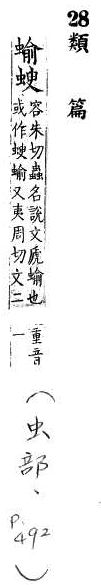 28 類篇
蝓
容朱切蟲名說文虒蝓也
或作蝓又夷周切文二
重音
一
（虫部、P.492）